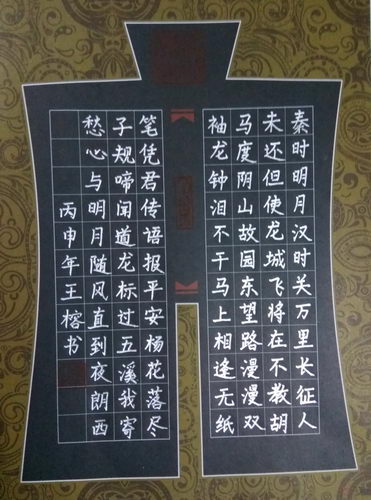 秦时明月汉时关万里长征人
未还但使龙城飞将在不教胡
马度阴山故园东望路漫漫双
袖龙钟泪不干马上相逢无纸
笔凭君传语报平安杨花落尽
子规啼闻道龙标过五溪我寄
愁心与明月随风直到夜朗西
丙申年王榕书